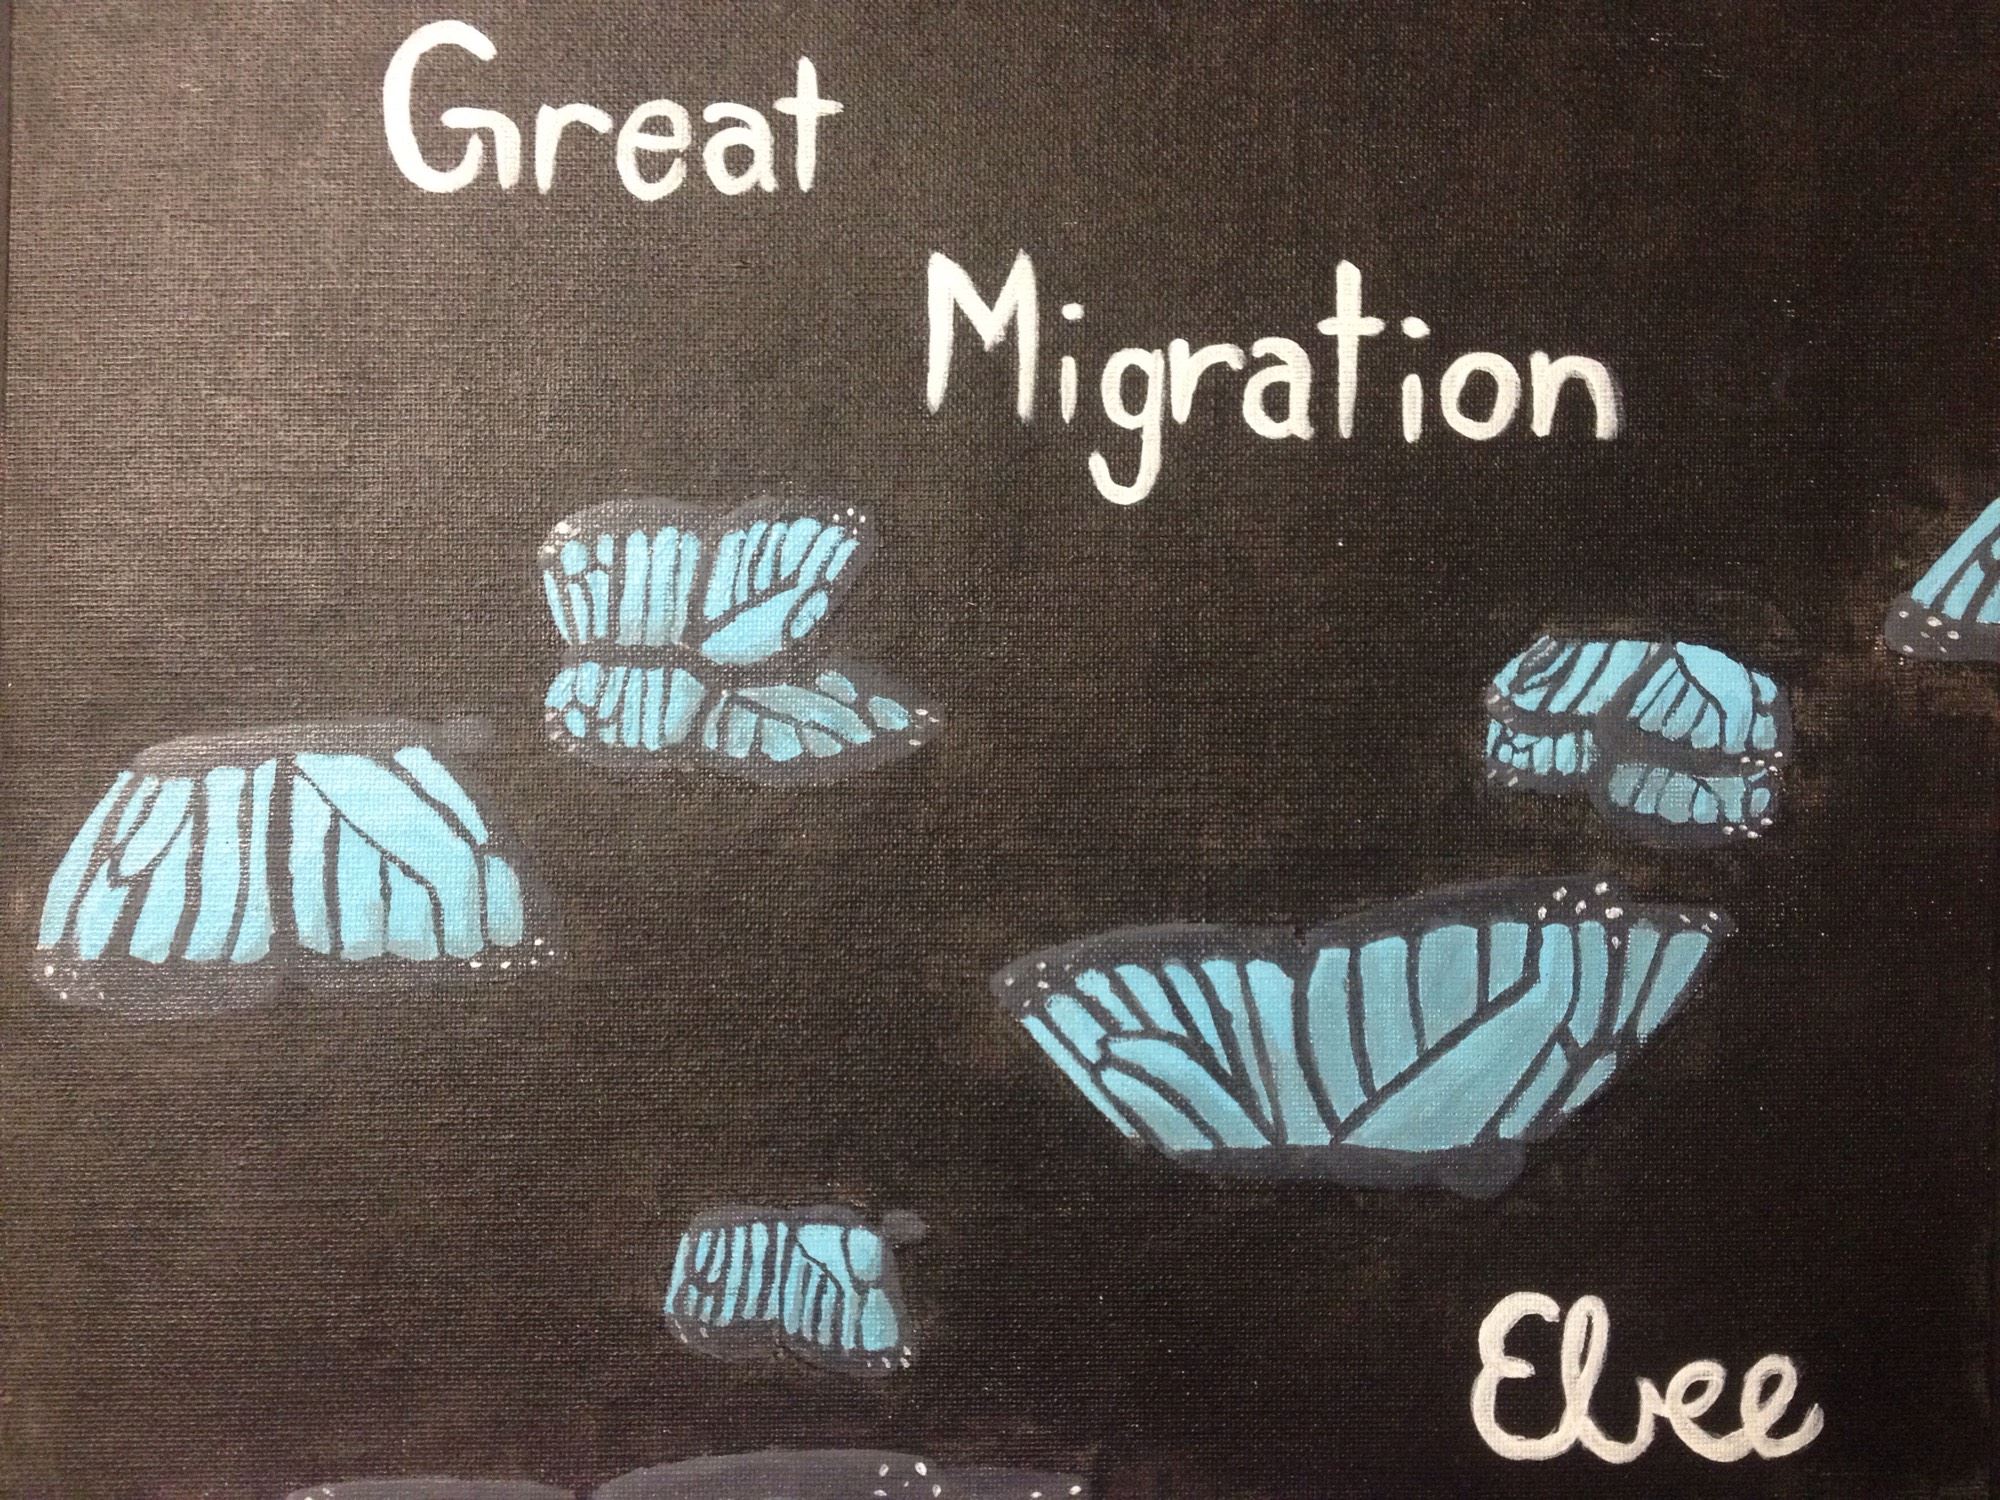 Great
Migration
Ebee